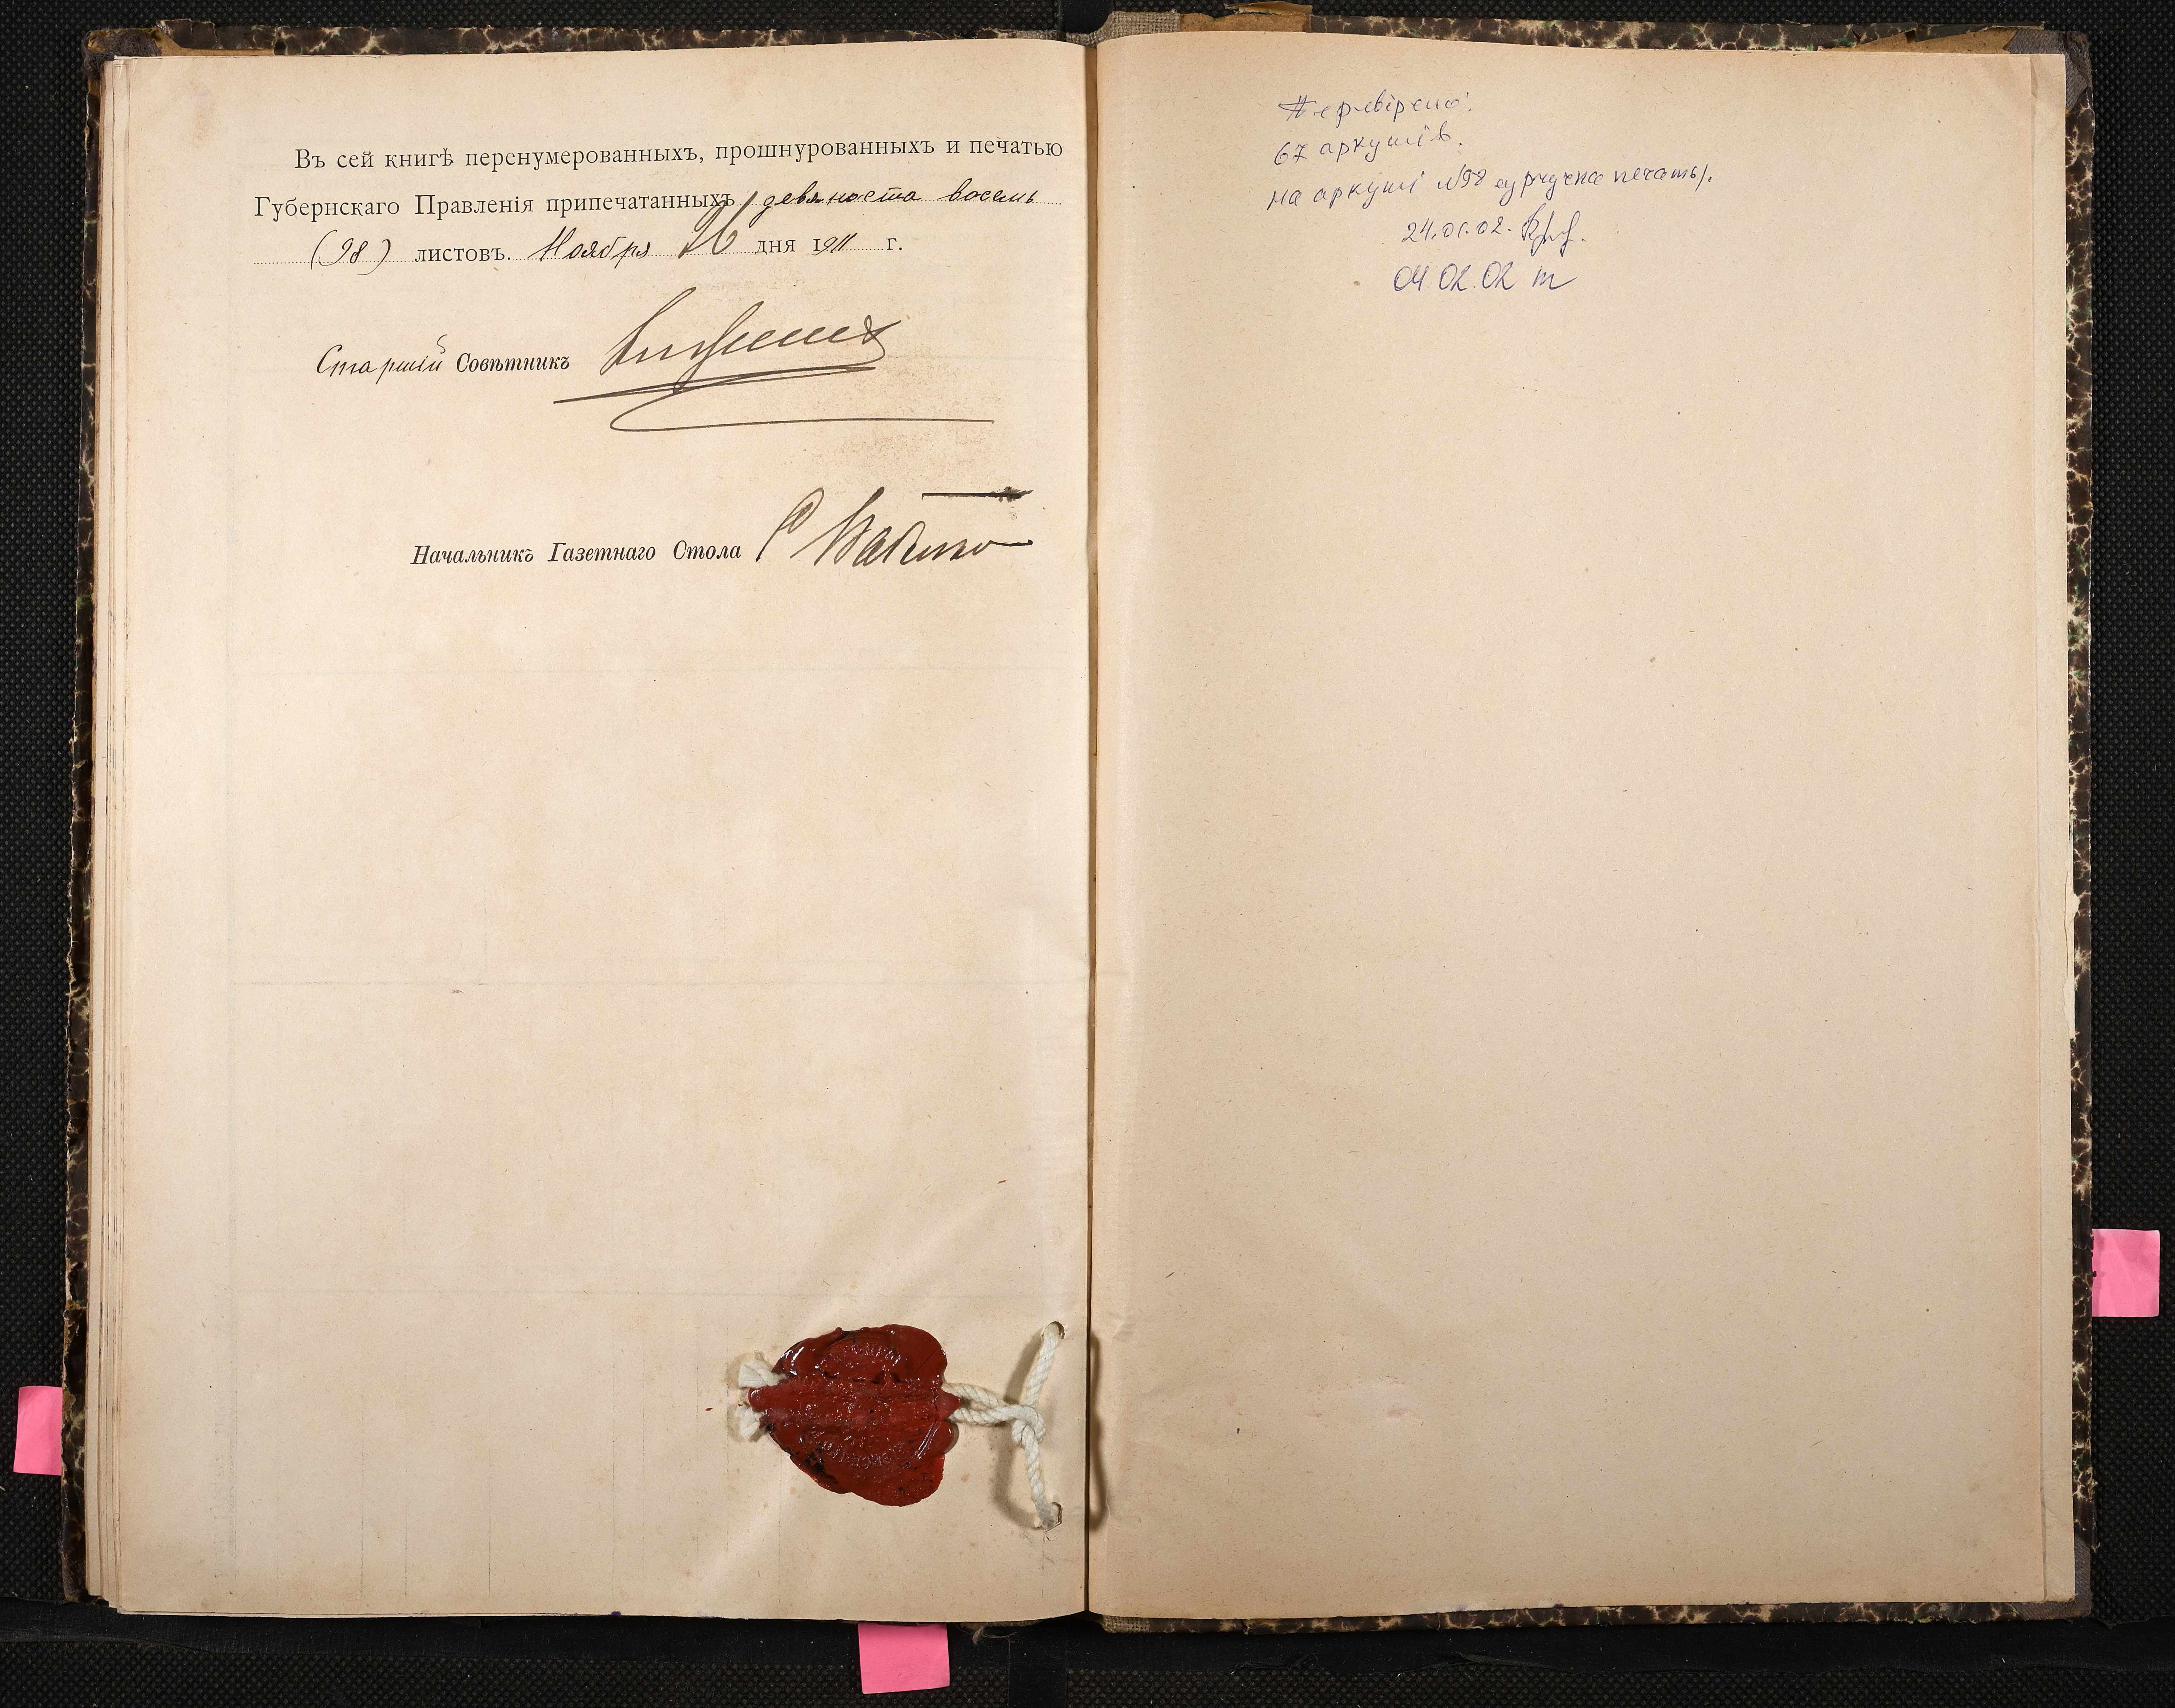 Въ сей книгѣ перенумерованныхъ, прошнурованныхъ и печатью
Губернскаго Правленія припечатанныхъ девяносто восемь
(98) листовъ. Ноября 26 дня 1911 г.
Старшій Совѣтникъ
Начальникъ Газетнаго Стола
Перевірено:
67 аркушів.
на аркуші №98 сургучна печать).
24.01.02.
04.02.02